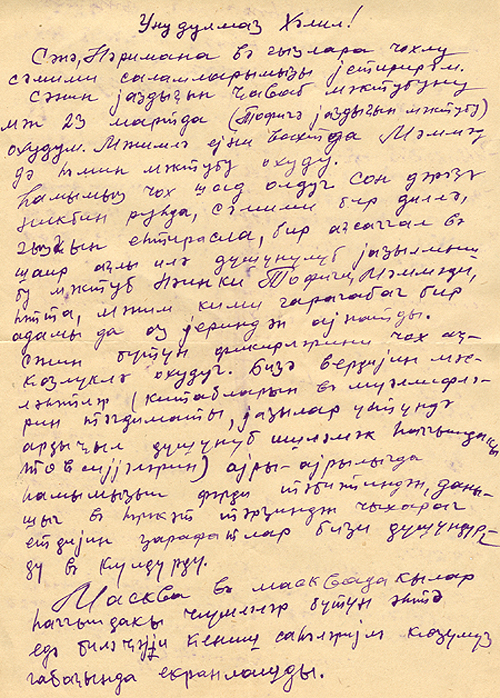 Унудулмаз Хәлил!
Сәнә, Нәримана вә гызлара чохлу
сәмими саламларымызы јетирирәм.
Сәнин јаздығын ҹаваб мәктубуну
мән 23 мартда (Тофигә јаздығын мәктубу)
охудум. Мәнимлә ејни вахтда Мәммәд
дә һәмин мәктубу охуду.
Һамымыз чох шад олдуг. Сон дәрәҹә
никбин руһда, сәмими бир дилдә,
гызғын еһтирасла, бир ағсаггал вә
шаир ағлы илә дүшүнүлүб јазылмыш
бу мәктуб нәинки Тофиги, Мәммәди,
һәтта, мәним кими гарагабаг бир
адамы да өз јериндән ојнатды.
Сәнин бүтүн фикирләрини чох ач-
көзлүклә охудуг. Бизә вердијин мәс-
ләһәтләр (китабларын вә мүәллифлә-
рин тәгдиматы, јазылар үстүндә
ардыҹыл дүшүнүб ишләмәк һаггындакы
төвсијјәләрин) ајры-ајрылыгда
һамымызын фәрди тәбиәтиндән, даны-
шыг вә һәрәкәт тәрзиндән чыхараг
етдијин зарафатлар бизи дүшүндүр-
дү вә күлдүрдү.
Москва вә москвадакылар
һаггындакы ҹүмләләр бүтүн
едә биләҹәји кениш сәһнәләри көзүмүз
габағында екранлашды.